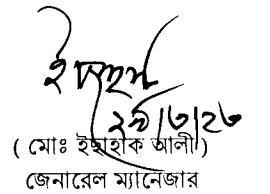 ২৯/৩/২৩
( মোঃ ইছাহাক আলী )
জেনারেল ম্যানেজার